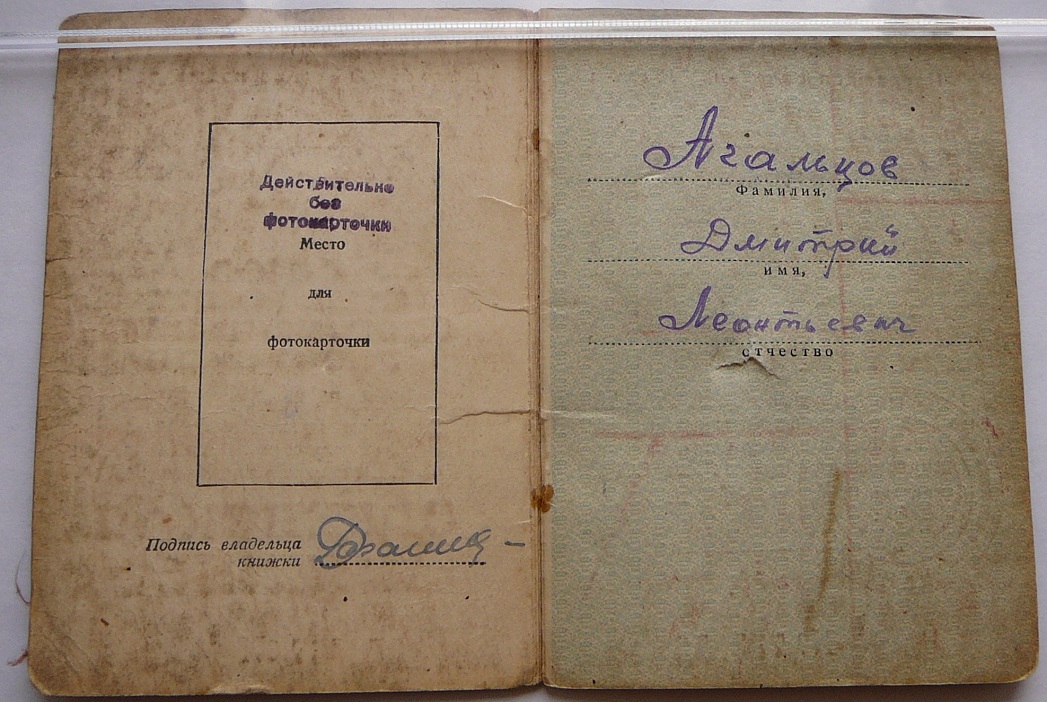 Действительно
без
фотокарточки
Место
для
фотокарточки
Подпись владельца
книжки
Агальцов
Фамилия,
Дмитрий
имя,
Леонтьевич
отчество